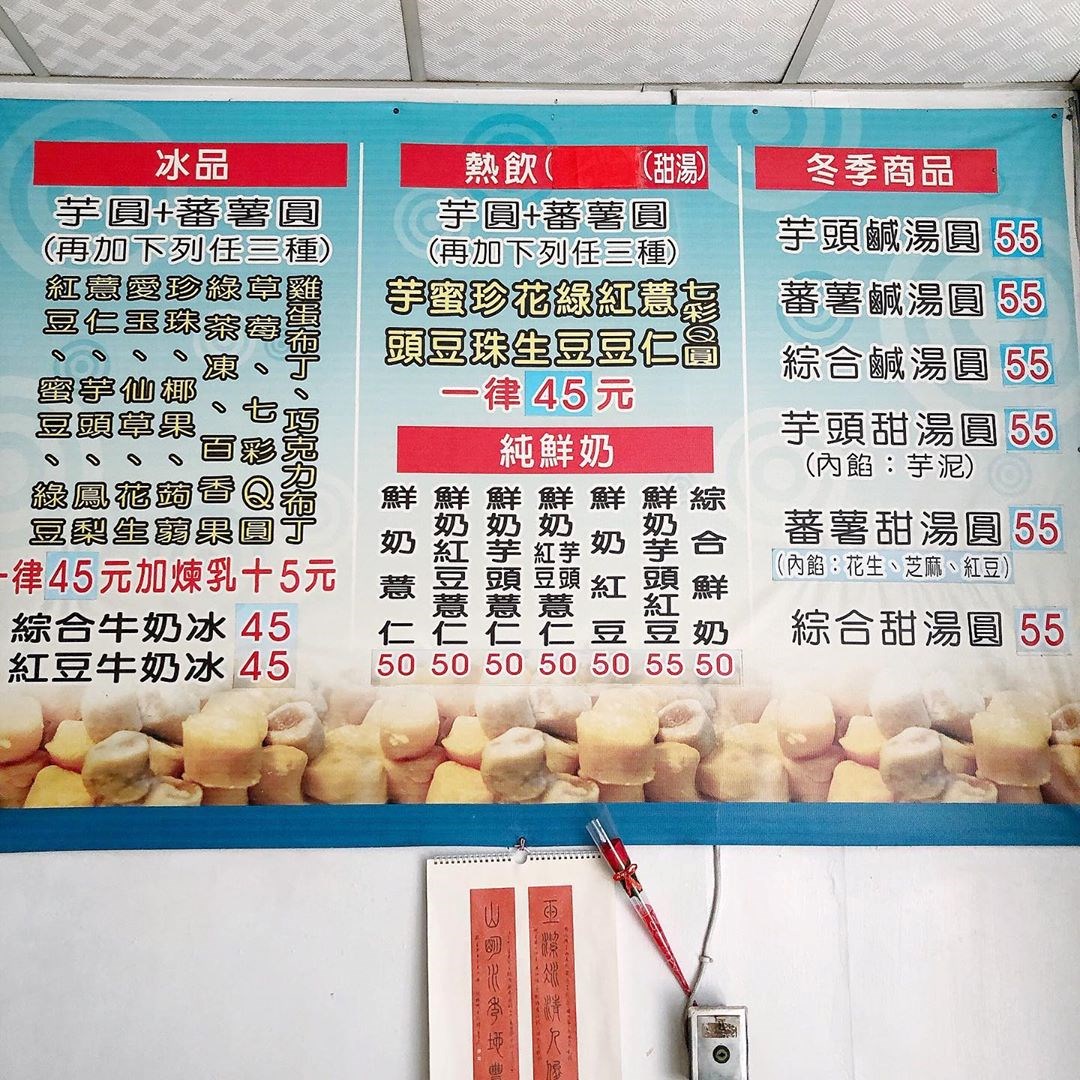 冰品
芋圓+蕃薯圓
(再加下列任三種)
紅豆、蜜豆、綠豆
薏仁、芋頭、鳳梨
愛玉、仙草、花生
珍珠、椰果、蒟蒻
綠茶凍、百香果
草莓、七彩Q圓
雞蛋布丁、巧克力布丁
一律45元加煉乳十5元
綜合牛奶冰 45
紅豆牛奶冰 45
熱飲( (甜湯)
芋圓+蕃薯圓
(再加下列任三種)
芋頭
蜜豆
珍珠
花生
綠豆
紅豆
薏仁
七彩Q圓
一律 45 元
純鮮奶
鮮奶薏仁 50
鮮奶紅豆薏仁 50
鮮奶芋頭薏仁 50
鮮奶紅豆芋頭薏仁 50
鮮奶紅豆 50
鮮奶芋頭紅豆 55
綜合鮮奶 50
冬季商品
芋頭鹹湯圓 55
蕃薯鹹湯圓 55
綜合鹹湯圓 55
芋頭甜湯圓 55
(內餡：芋泥)
蕃薯甜湯圓 55
(內餡：花生、芝麻、紅豆)
綜合甜湯圓 55